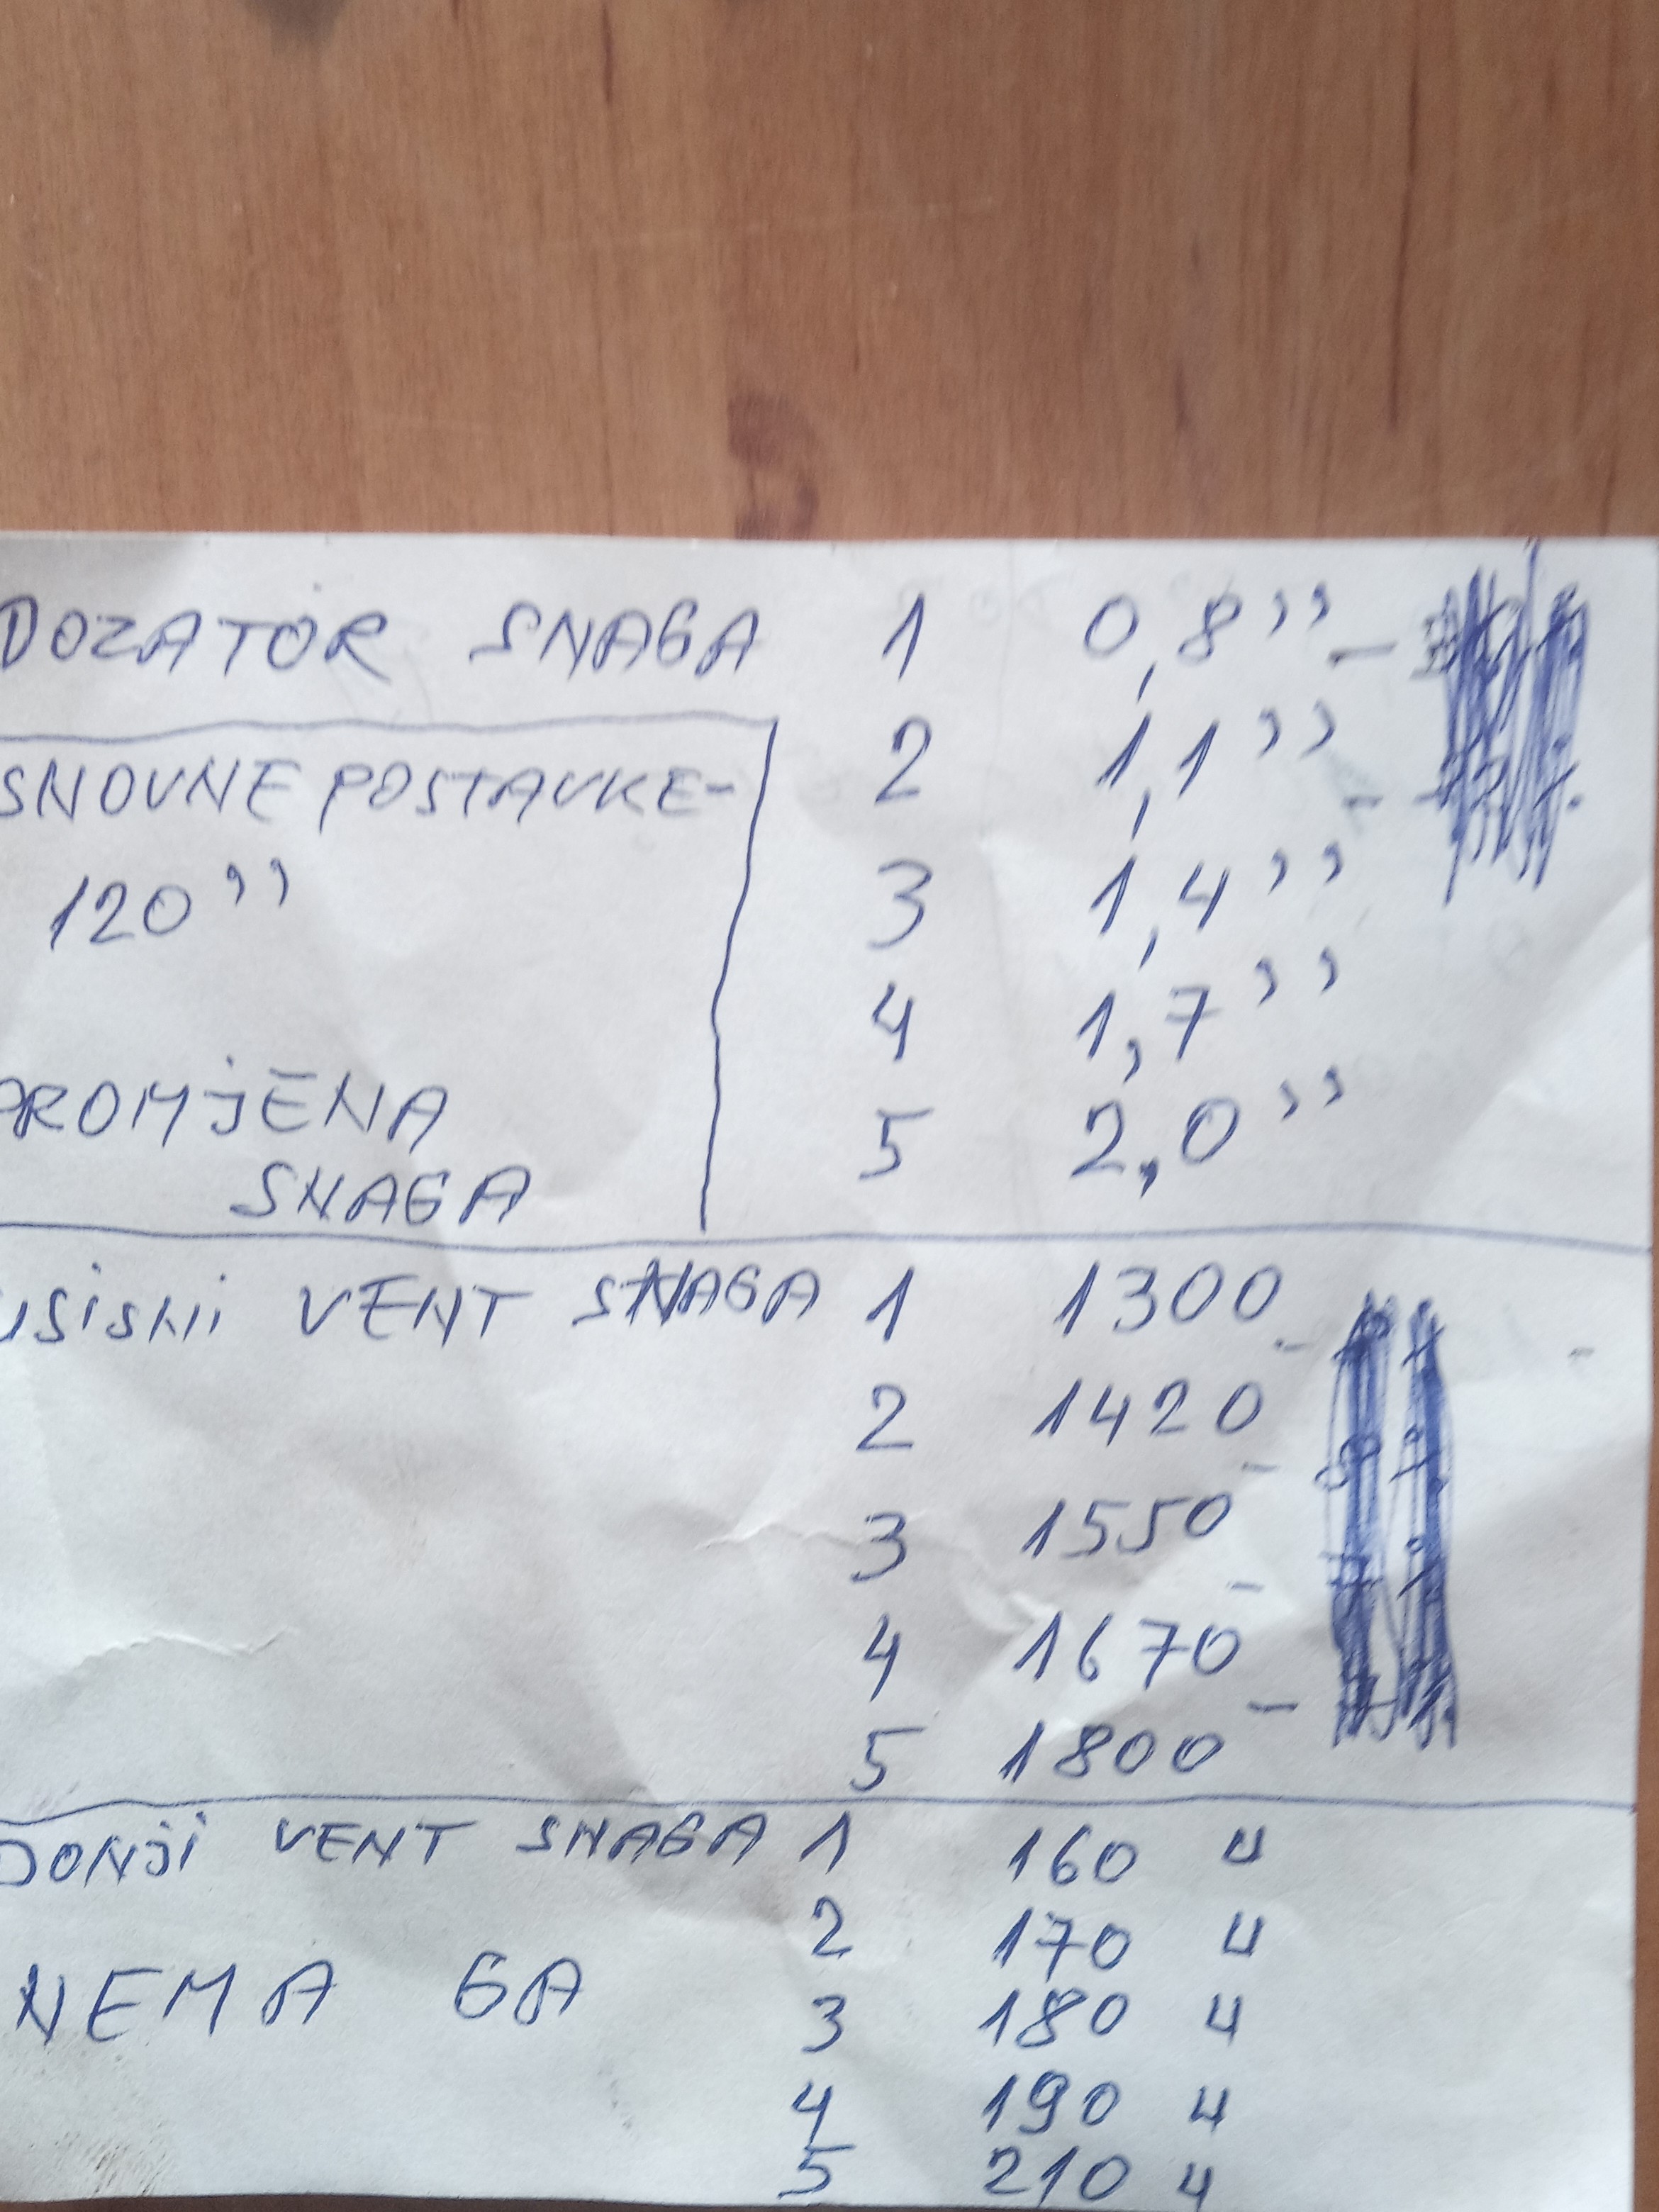 DOZATOR SNAGA 1 0,8"
SNOVNE POSTAVKE- 2 1,1"
120" 3 1,4"
4 1,7"
PROMJENA 5 2,0"
SNAGA
USISNI VENT SNAGA 1 1300
2 1420
3 1550
4 1670
5 1800
DONJI VENT SNAGA 1 160 4
2 170 4
NEMA GA 3 180 4
4 190 4
5 210 4